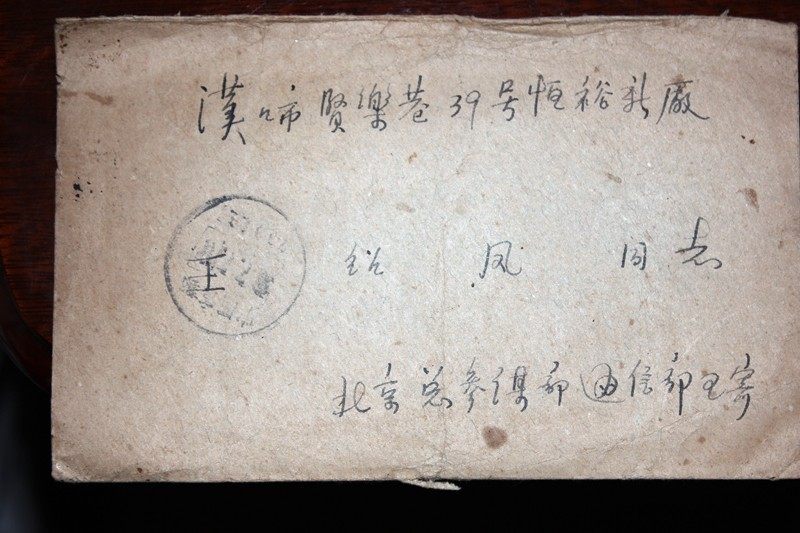 漢口市賢樂巷39号恒裕新廠
王 铨 凤 同志
北京总参谋部通信部王寄